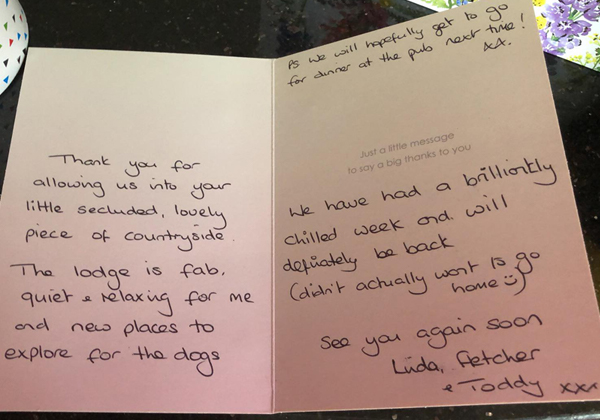 Thank you for
allowing us into your
little secluded, lovely
piece of countryside.
The lodge is fab,
quiet & relaxing for me
and new places to
explore for the dogs
PS We will hopefully get to go
for dinner at the pub next time!
Just a little message
to say a big thanks to you
We have had a brilliantly
chilled week and will
definately be back
(didn't actually want to go
home ☺)
See you again soon
Linda, Fletcher
& Toddy xxx